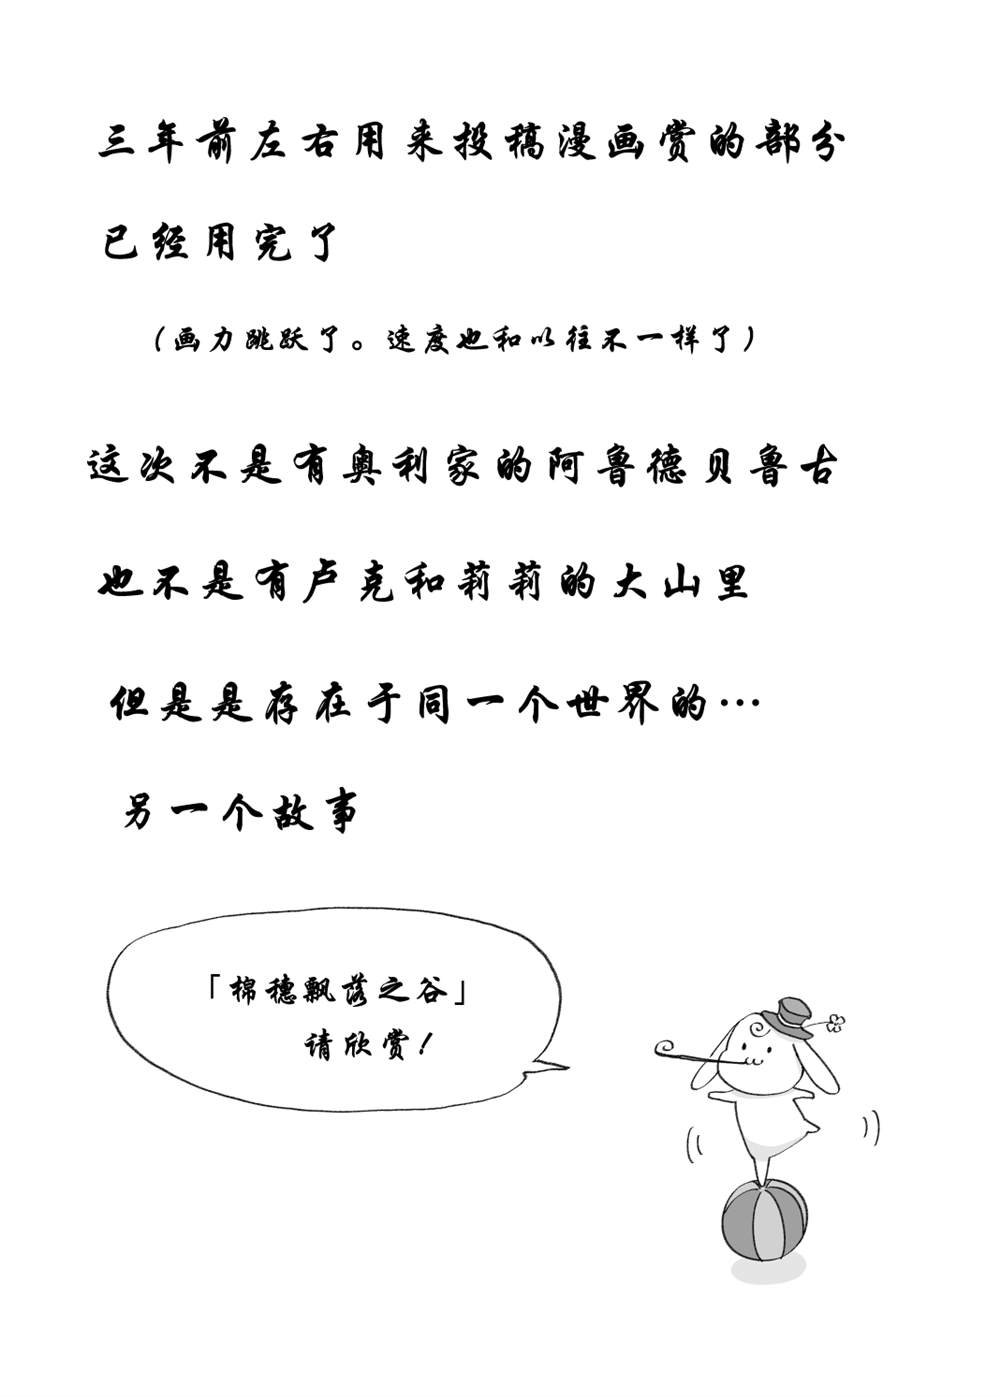 三年前左右用来投稿漫画赏的部分
已经用完了
（画力跳跃了。速度也和以往不一样了）
这次不是有奥利家的阿鲁德贝鲁古
也不是有卢克和莉莉的大山里
但是是存在于同一个世界的…
另一个故事
「棉穗飘落之谷」
请欣赏！